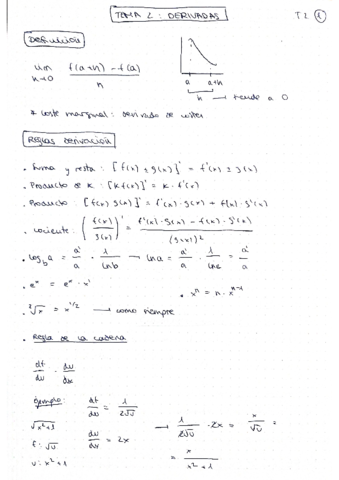 TEMA 2: DERIVADAS
T2 1
Definición
lim h→0 f(a+h) - f(a) / h
a a+h
h → tiende a 0
* Coste marginal: derivada de costes
Reglas derivación
· Suma y resta: [f(x) ± g(x)]' = f'(x) ± g'(x)
· Producto de K: [K f(x)]' = K · f'(x)
· Producto: [f(x) g(x)]' = f'(x) · g(x) + f(x) · g'(x)
· Cociente: (f(x) / g(x))' = f'(x) · g(x) - f(x) · g'(x) / (g(x))²
· log_b a = a'/a · 1/ln b → ln a = a'/a · 1/ln e = a'/a
· eˣ = eˣ · x'
· xⁿ = n · xⁿ⁻¹
· ²√x = x^1/2 → como siempre
· Regla de la cadena
df/du · du/dx
Ejemplo: df/du = 1/2√u
√x²+1
f: √u du/dx = 2x → 1/2√u · 2x = x/√u =
u: x²+1 = x/x²+1